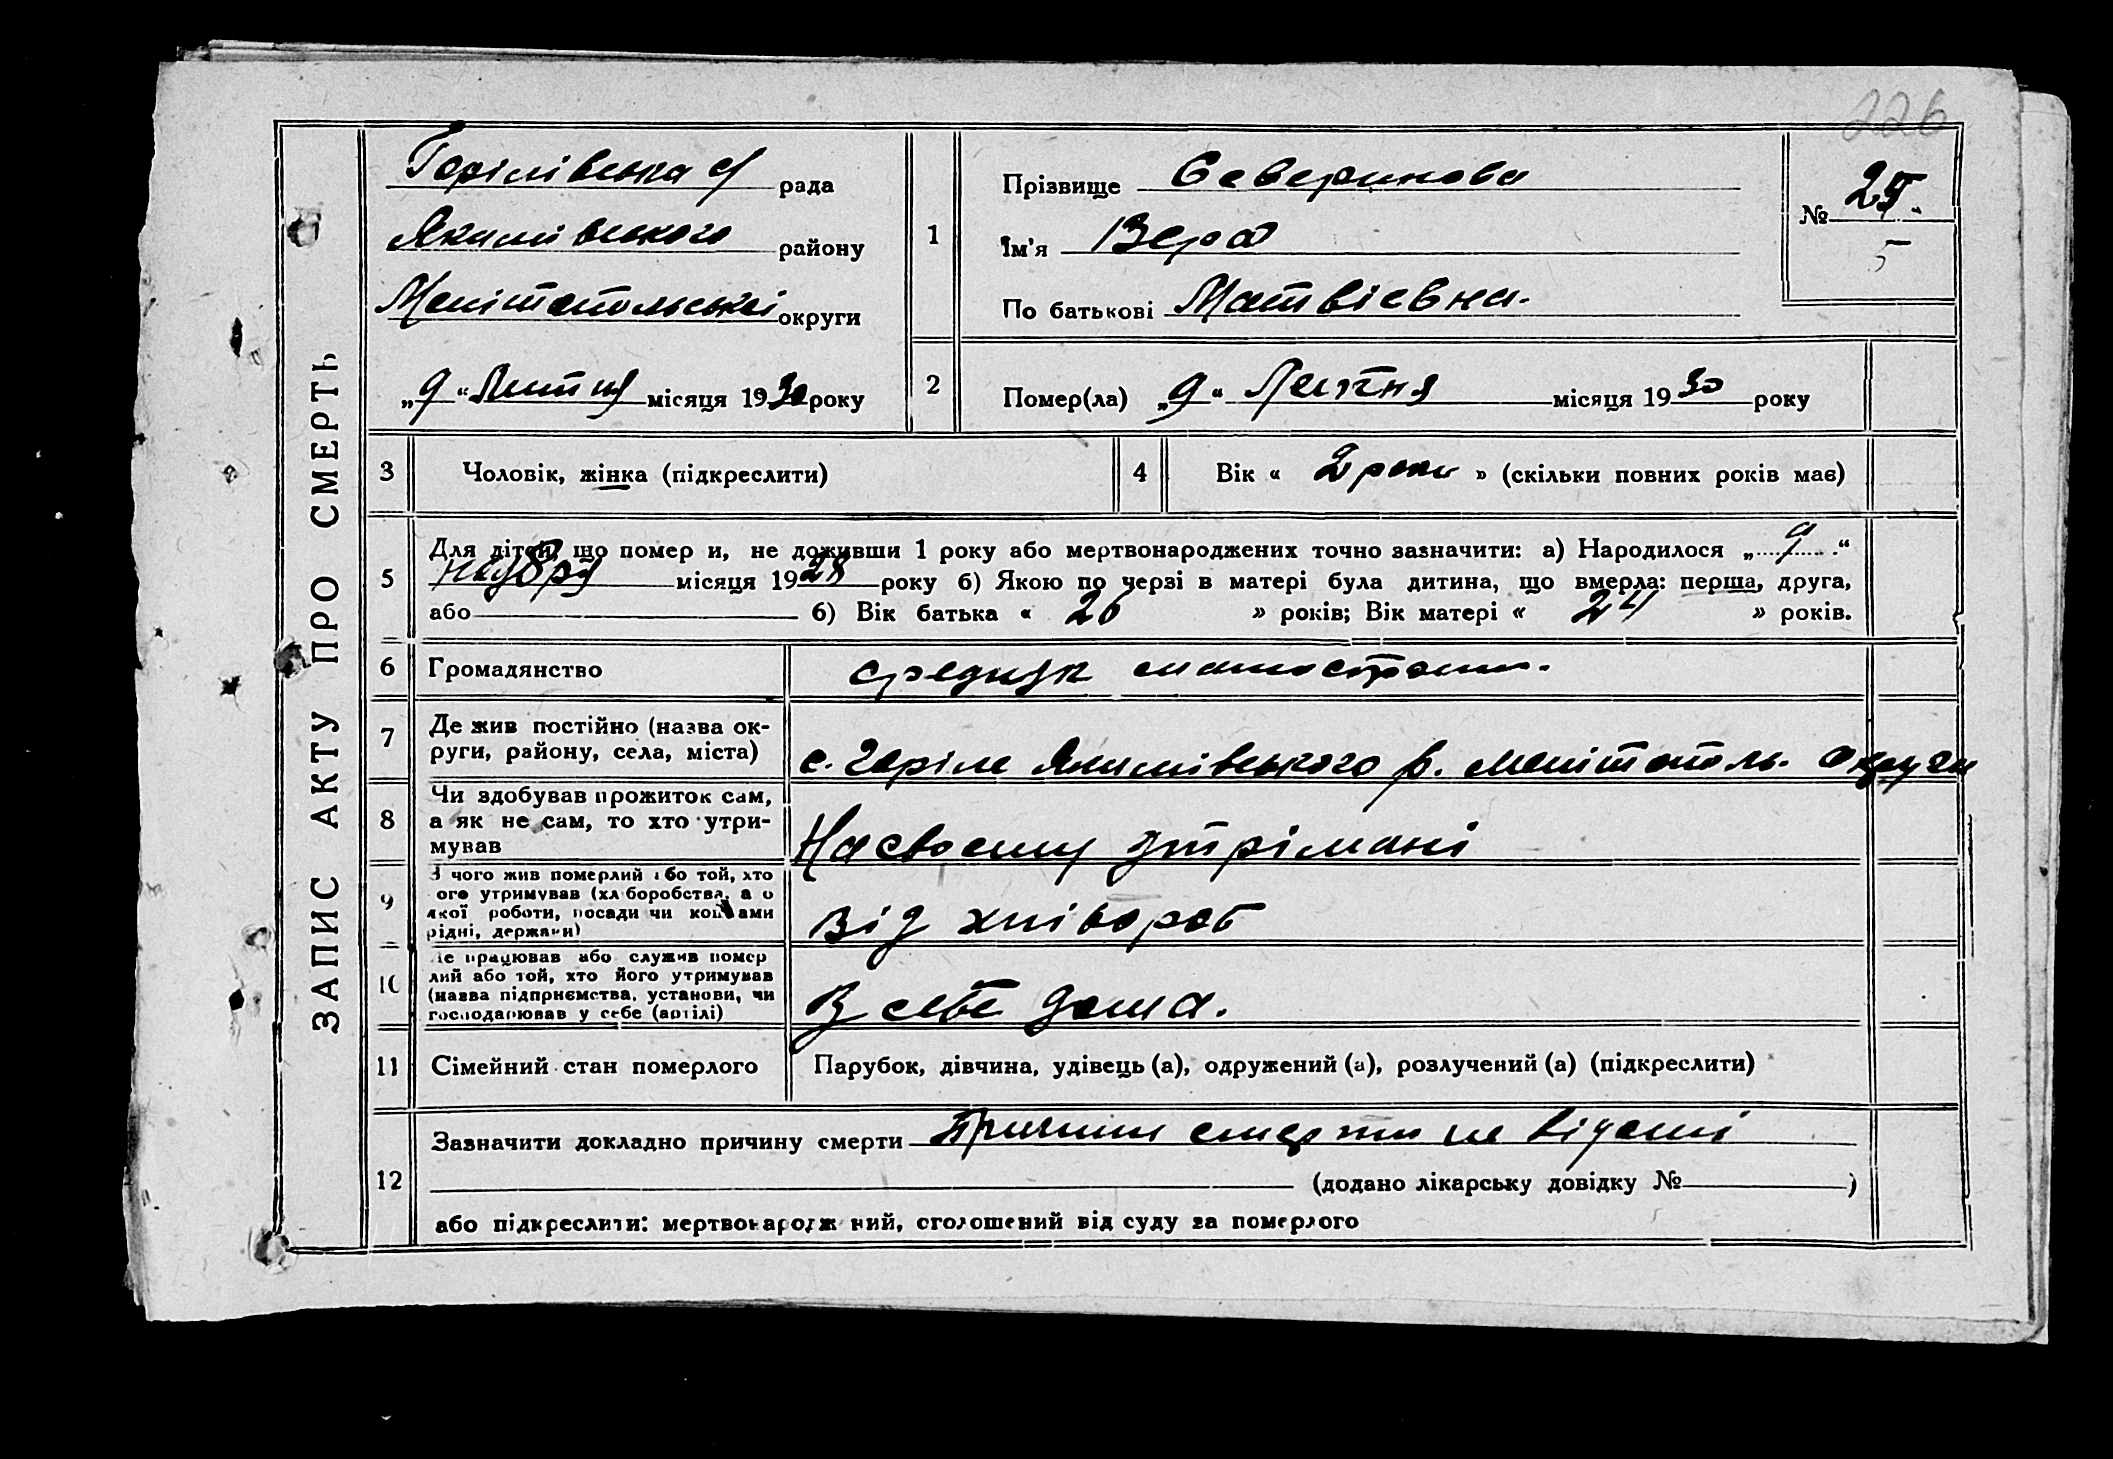 226
ЗАПИС АКТУ ПРО СМЕРТЬ
Горілівська с/ рада
Якимівського району
Мелітопольської округи
„9“ Липня місяця 1930 року
1
Прізвище Северинова
Ім'я Вера
По батькові Матвієвна.
№ 25.
5
2
Помер(ла) „9“ Липня місяця 1930 року
3
Чоловік, жінка (підкреслити)
4
Вік « 2 роки » (скільки повних років має)
5
Для дітей, що помер и, не доживши 1 року або мертвонароджених точно зазначити: а) Народилося „9“
місяця 1928 року б) Якою по черзі в матері була дитина, що вмерла: перша, друга,
або б) Вік батька « 26 » років; Вік матері « 24 » років.
6
Громадянство
7
Де жив постійно (назва ок-
руги, району, села, міста)
с. Горіле Якимівського р. Мелітополь. округи
8
Чи здобував прожиток сам,
а як не сам, то хто утри-
мував
На своєму утрімані
9
З чого жив померлий або той, хто
ого утримував (хл боробства, а о
якої роботи, посади чи коштами
рідні, держави)
Від хлібороб
10
Де працював або служив помер
лий або той, хто його утримував
(назва підприємства, установи, чи
господарював у себе (артілі)
В себе дома.
11
Сімейний стан померлого
Парубок, дівчина, удівець (а), одружений (а), розлучений (а) (підкреслити)
12
Зазначити докладно причину смерти Причини смерти не відомі
(додано лікарську довідку № )
або підкреслити: мертвонародж ний, оголошений від суду за померлого